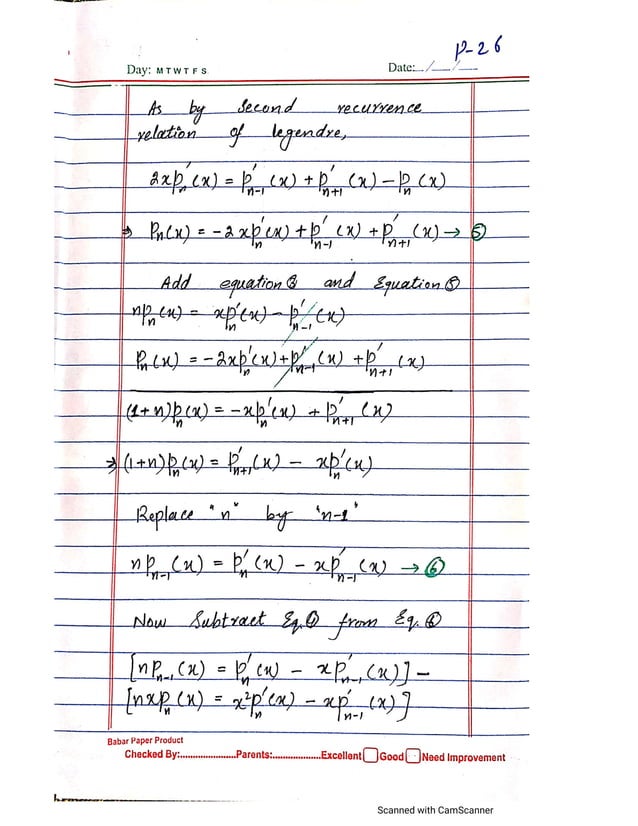 P-26
Day: M T W T F S Date:__/__/__
As by Second recurrence
relation of legendre,
2xP'ₙ(x) = P'ₙ₋₁(x) + P'ₙ₊₁(x) − Pₙ(x)
⇒ Pₙ(x) = −2xP'ₙ(x) + P'ₙ₋₁(x) + P'ₙ₊₁(x) → ⑤
Add equation and Equation ⑤
nPₙ(x) = xP'ₙ(x) − P'ₙ₋₁(x)
Pₙ(x) = −2xP'ₙ(x) + P'ₙ₋₁(x) + P'ₙ₊₁(x)
(1+n)Pₙ(x) = −xP'ₙ(x) + P'ₙ₊₁(x)
⇒ (1+n)Pₙ(x) = P'ₙ₊₁(x) − xP'ₙ(x)
Replace "n" by "n-1"
nPₙ₋₁(x) = P'ₙ(x) − xP'ₙ₋₁(x) → ⑥
Now Subtract Eq. from Eq. ⑥
[nPₙ₋₁(x) = P'ₙ(x) − xP'ₙ₋₁(x)] −
[nxPₙ(x) = x²P'ₙ(x) − xP'ₙ₋₁(x)]
Babar Paper Product
Checked By:......................Parents:...................Excellent Good Need Improvement
Scanned with CamScanner